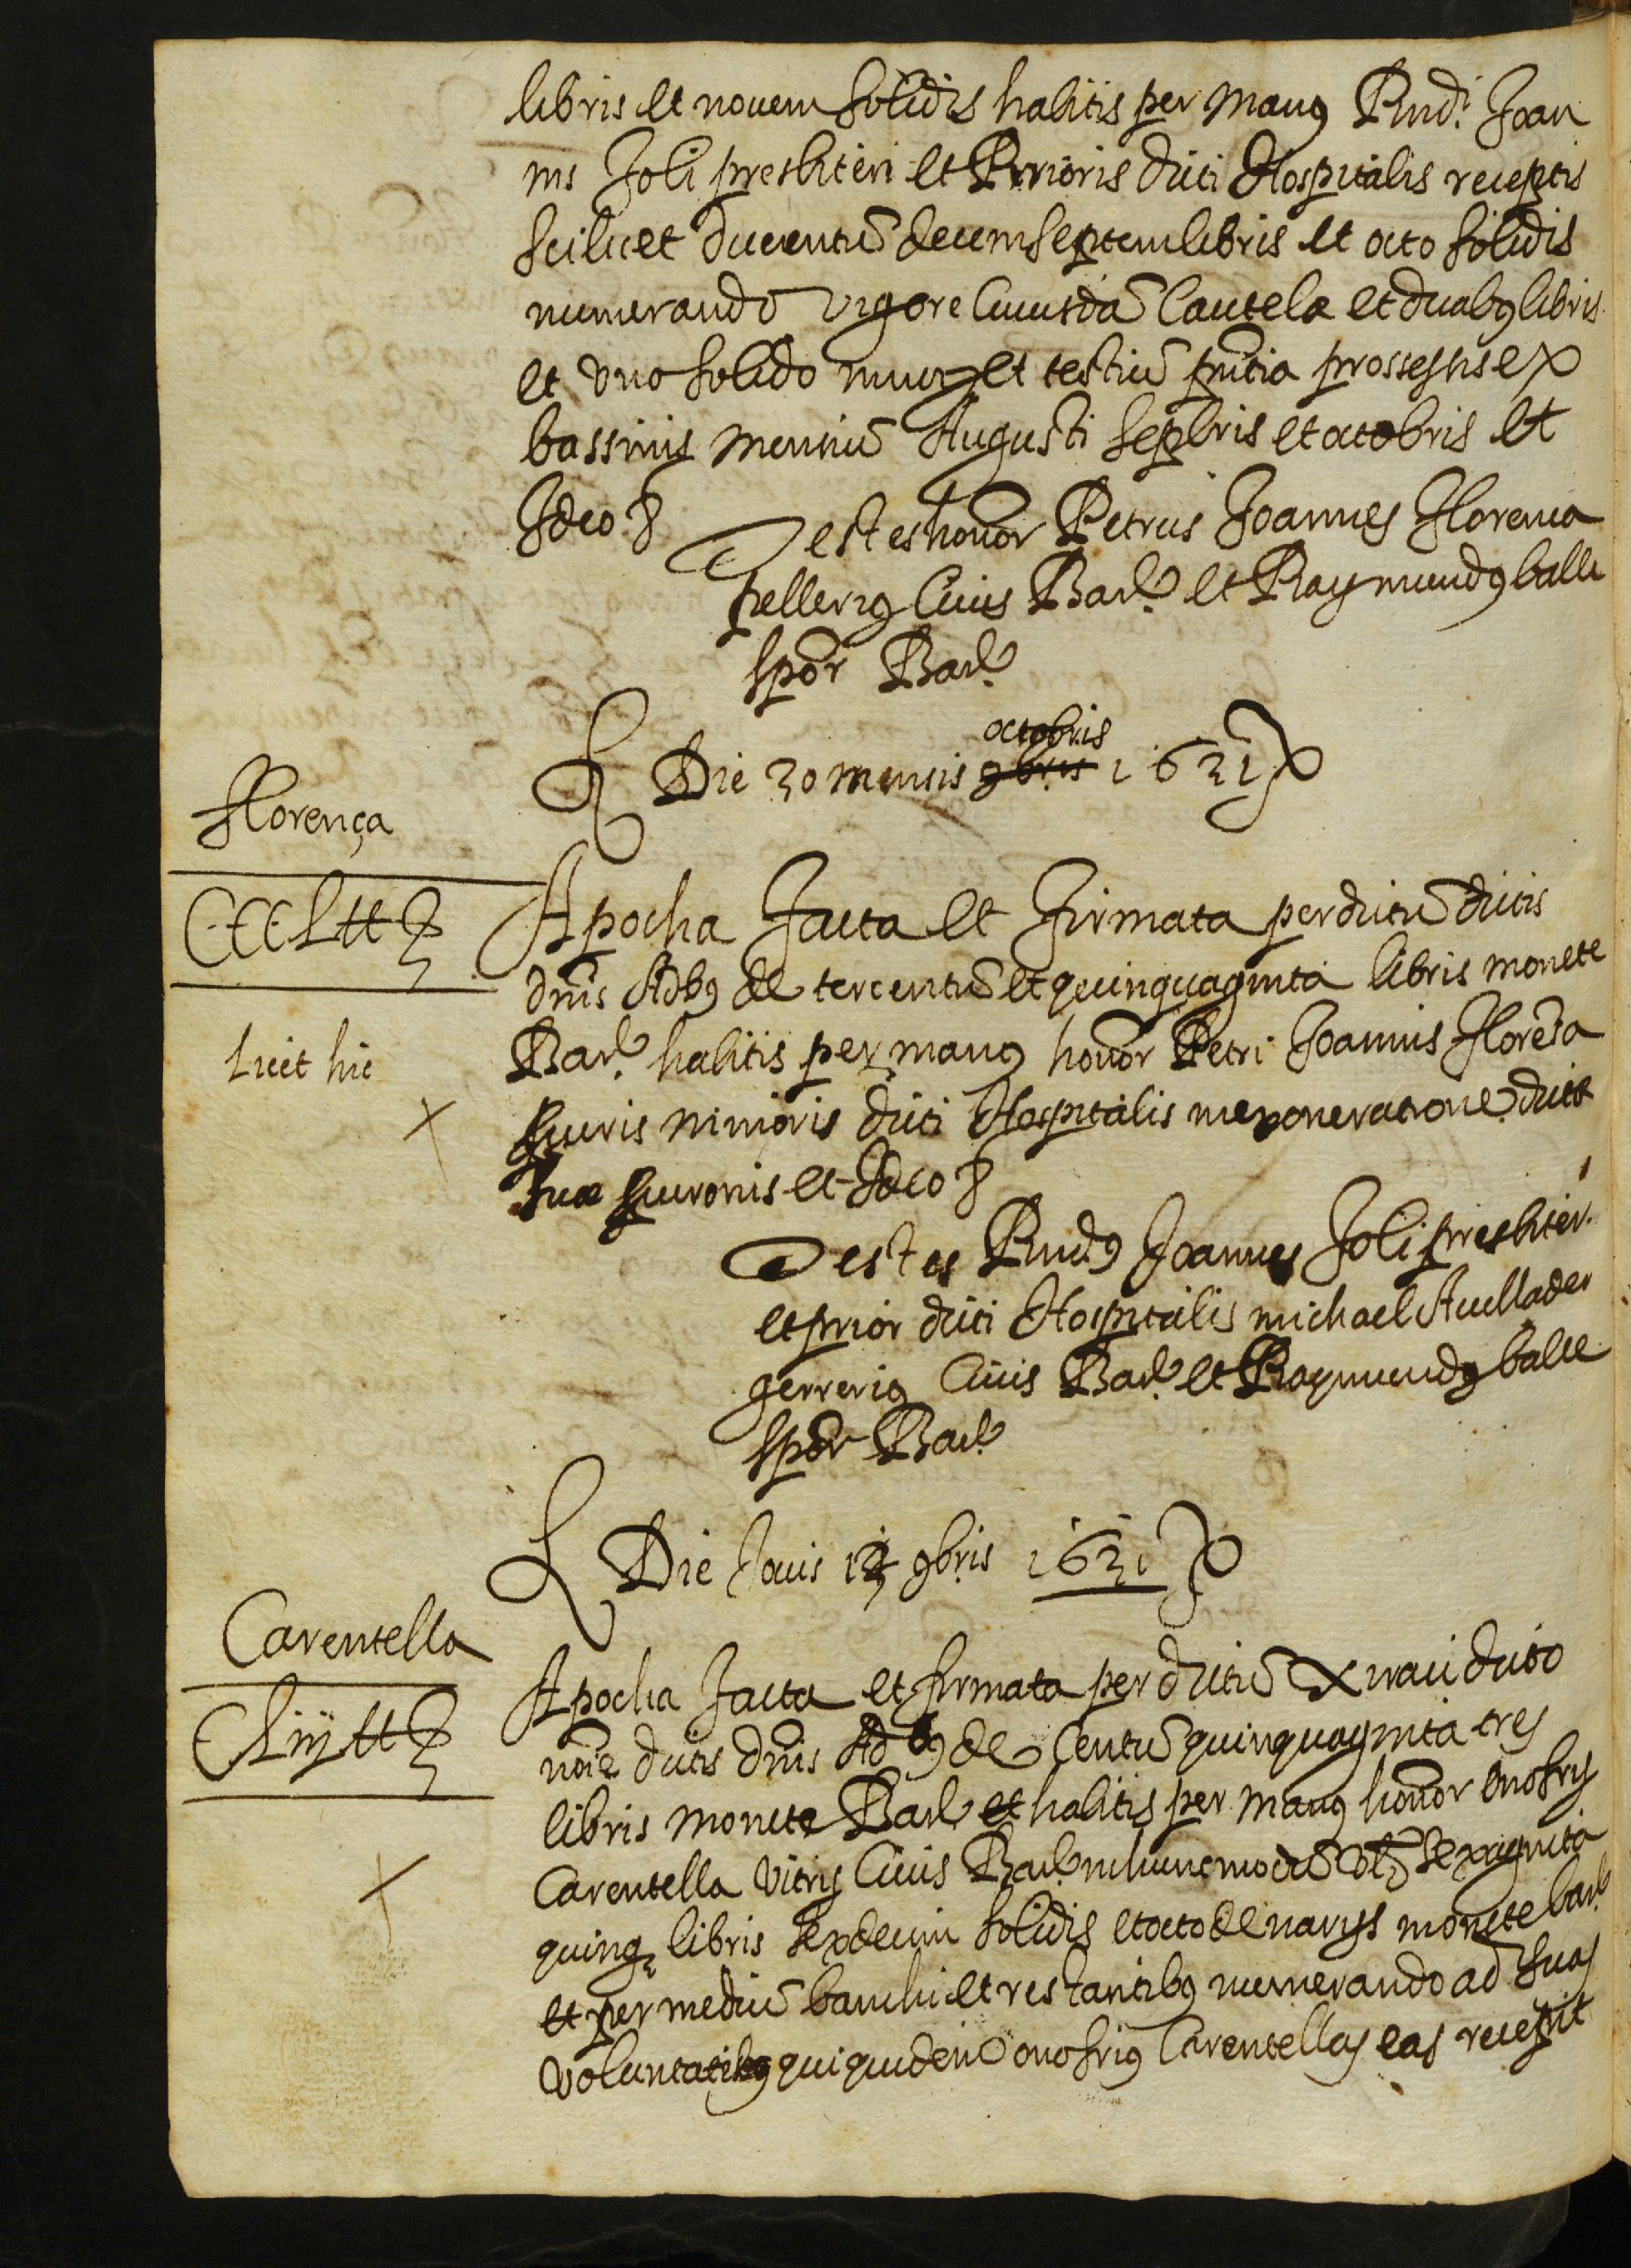 libris et novem solidis habitis per manus Rndi. Joan
nis Joli presbiteri et Prioris dicti Hospitalis receptis
scilicet ducentũ decem septem libris et octo solidis
numerando vigore cuiusdã cautele et duabus libris
et uno solido et testiũ pñtia
bassinis mensiũ Augusti sepbris et octobris et
Ideo &
Testes honor Petrus Joannes Florença
pellerius civis Barã et Raymundus balle
spõr Barã
Die 30 mensis 9bris octobris 1621
Florença
CCCL tt ß
Apocha facta et firmata per dictũ dictis
dñis Adbus de tercentũ et quinquaginta libris monete
Barã habitis per manus honor Petri Joannis Florẽsa
licet hic
questoris minoris dicti Hospitalis in exoneratione dicte
sue et Ideo &
Testes Rndus Joannes Joli presbiter
et prior dicti Hospitalis michael Avellader
gerrerius civis Barã et Raymundus balle
spõr Barã
Die Jovis 9bris 1621
Carentella
CLiij tt ß
Apocha facta et firmata per dictũ dicto
noĩe dictis dñis Adbus de centũ quinquaginta tres
libris monete Barã et habitis per manus honor onofrij
Carentella vitrij civis Barã in hunc modũ sexaginta
quinq libris sexdecim solidis et octo denarijs monete barã
et per mediũ banchi et restantibus numerando ad suas
voluntatibus qui quidem onofrius Carentellas eas recepit